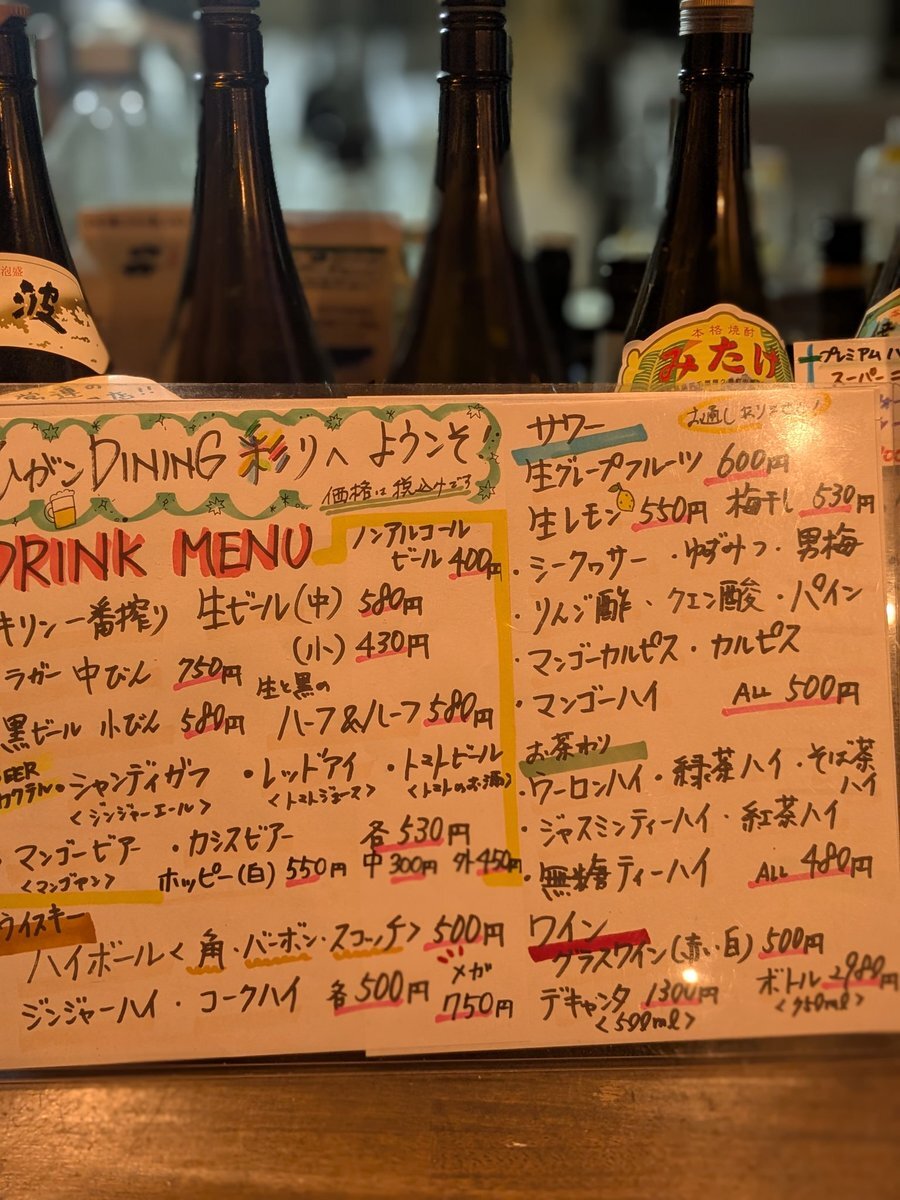 泡盛
波
本格焼酎
みたけ
プレミアムハ
スーパーニ
ひがンDINING 彩りへ ようこそ!
価格は税込みです
DRINK MENU
ノンアルコール
ビール 400円
キリン一番搾り 生ビール(中) 580円
(小) 430円
ラガー 中びん 750円
生と黒の
黒ビール 小びん 580円 ハーフ&ハーフ 580円
BEER
カクテル・シャンディガフ ・レッドアイ ・トマトビール
<ジンジャーエール> <トマトジュース> <トマトのお酒>
・マンゴービアー ・カシスビアー 各530円
<マンゴヤン> ホッピー(白) 550円 中300円 外450円
ウイスキー
ハイボール<角・バーボン・スコッチ> 500円
ジンジャーハイ・コークハイ 各500円 メガ
750円
お通しありません!
サワー
生グレープフルーツ 600円
生レモン 550円 梅干し 530円
・シークヮサー ・ゆずみつ ・男梅
・りんご酢・クエン酸・パイン
・マンゴーカルピス・カルピス
・マンゴーハイ ALL 500円
お茶わり
・ウーロンハイ・緑茶ハイ・そば茶
ハイ
・ジャスミンティーハイ・紅茶ハイ
・無糖ティーハイ ALL 480円
ワイン
グラスワイン(赤・白) 500円
デキャンタ 1300円 ボトル 2980円
<500ml> <750ml>